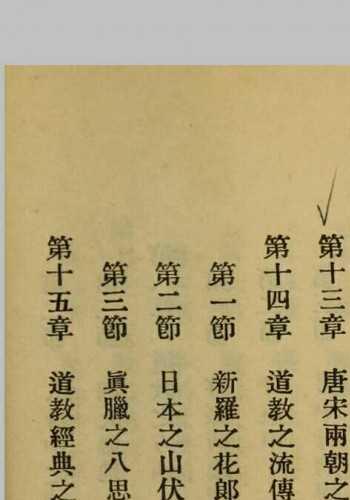 第十三章 唐宋兩朝之
第十四章 道教之流傳
第一節 新羅之花郎
第二節 日本之山伏
第三節 眞臘之八思
第十五章 道教經典之